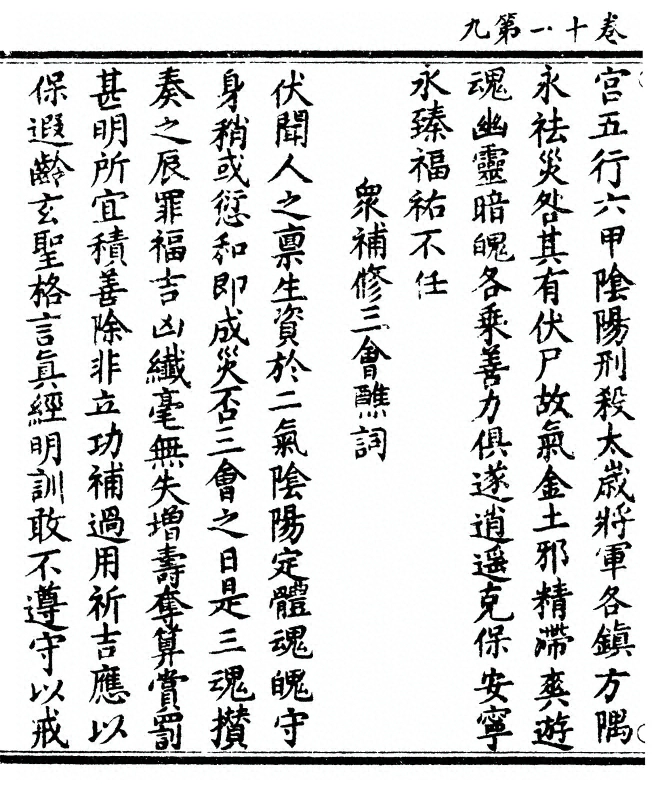 卷十一第九
宮五行六甲陰陽刑殺太歲將軍各鎮方隅
永祛災咎其有伏尸故氣金土邪精滯爽遊
魂幽靈暗魄各乘善力俱遂逍遥克保安寧
永臻福祐不任
衆補修三會醮詞
伏聞人之禀生資於二氣陰陽定體魂魄守
身稍或愆和即成災否三會之日是三魂攅
奏之辰罪福吉凶纖毫無失增壽奪算賞罰
甚明所宜積善除非立功補過用祈吉應以
保遐齡玄聖格言眞經明訓敢不遵守以戒